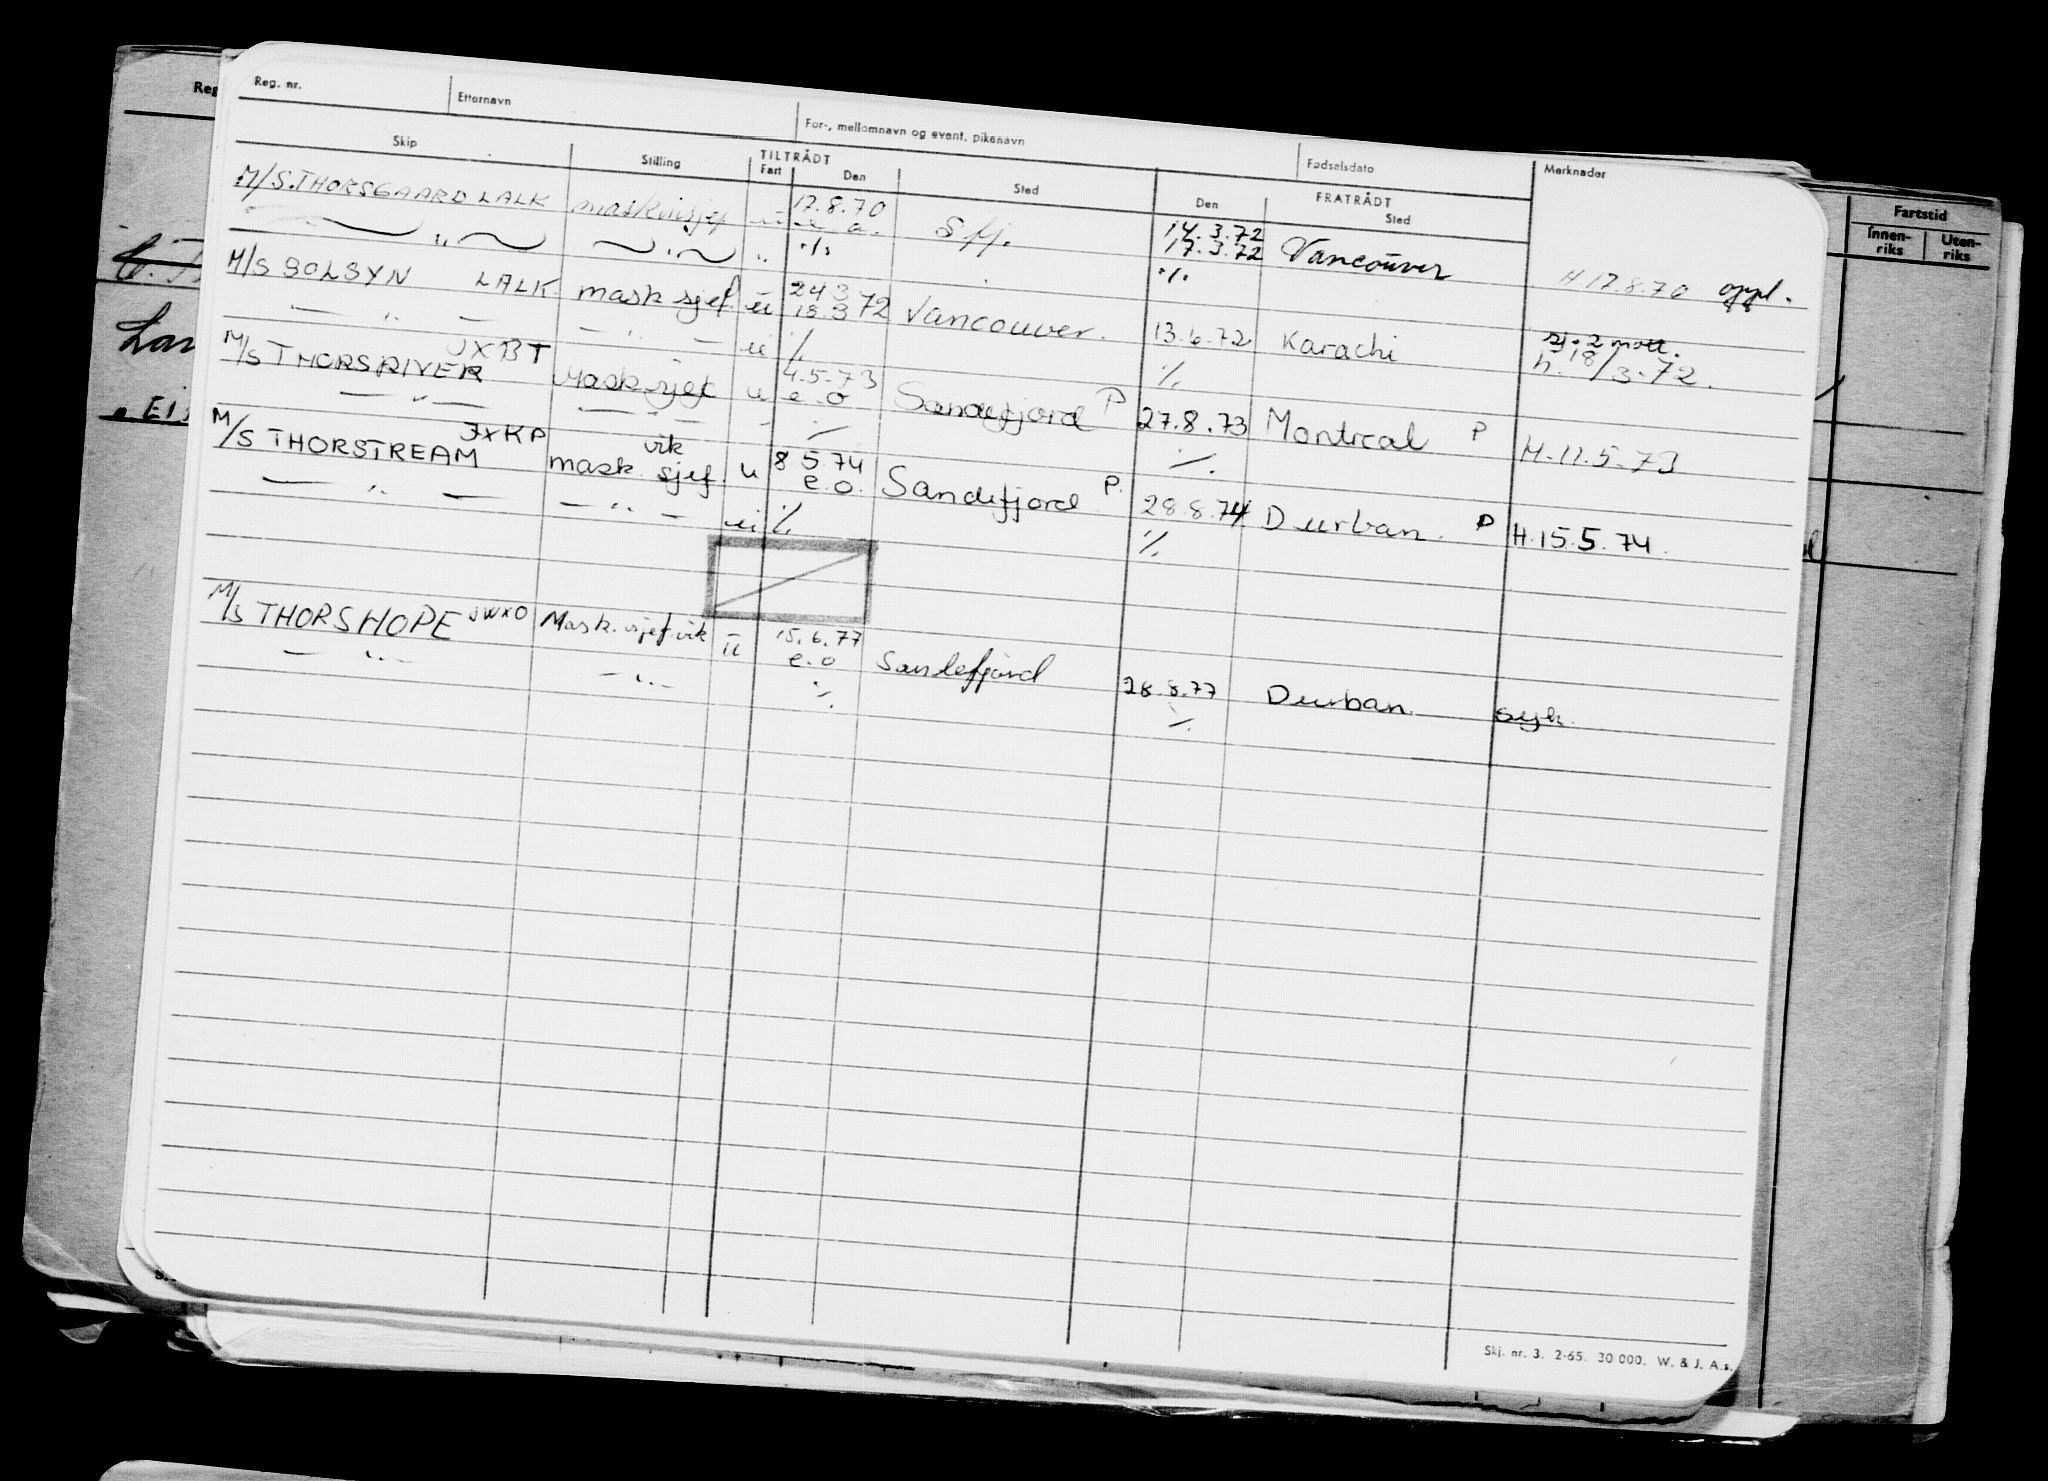 Reg. nr. Etternavn For-, mellomnavn og event. pikenavn Fødselsdato Merknader
Skip Stilling TILTRÅDT Fart Den Sted FRATRÅDT Den Sted
Fartstid
Innen-riks Uten-riks
M/S. THORSGAARD LALK maskinsjef u 17.8.70 Sfj. 14.3.72
" " " ./. 17.3.72 Vancouver H 17.8.70 oppl.
M/S SOLSYN LALK mask sjef. u 24 3 72 ./.
18 3 Vancouver. 13.6.72 Karachi sj. 2 mott.
— " — — " — u ./. h. 18/3.72.
M/S THORSRIVER JXBT Mask.sjef u 4.5.73 ./.
e.o Sandefjord P 27.8.73 Montreal P H.11.5.73
— " — — " — " ./.
M/S THORSTREAM JXKP mask. sjef. vik u 8 5 74 ./.
e.o. Sandefjord P. 28.8.74 Durban. P H.15.5.74.
— " — — " — u ./. ./.
M/S THORSHOPE JWXO Mask. sjef. vik u 15.6.77
e.o Sandefjord 28.8.77 Durban. syk.
— " — — " — ./. ./.
Skj. nr. 3. 2-65. 30 000. W. & J. A.s.